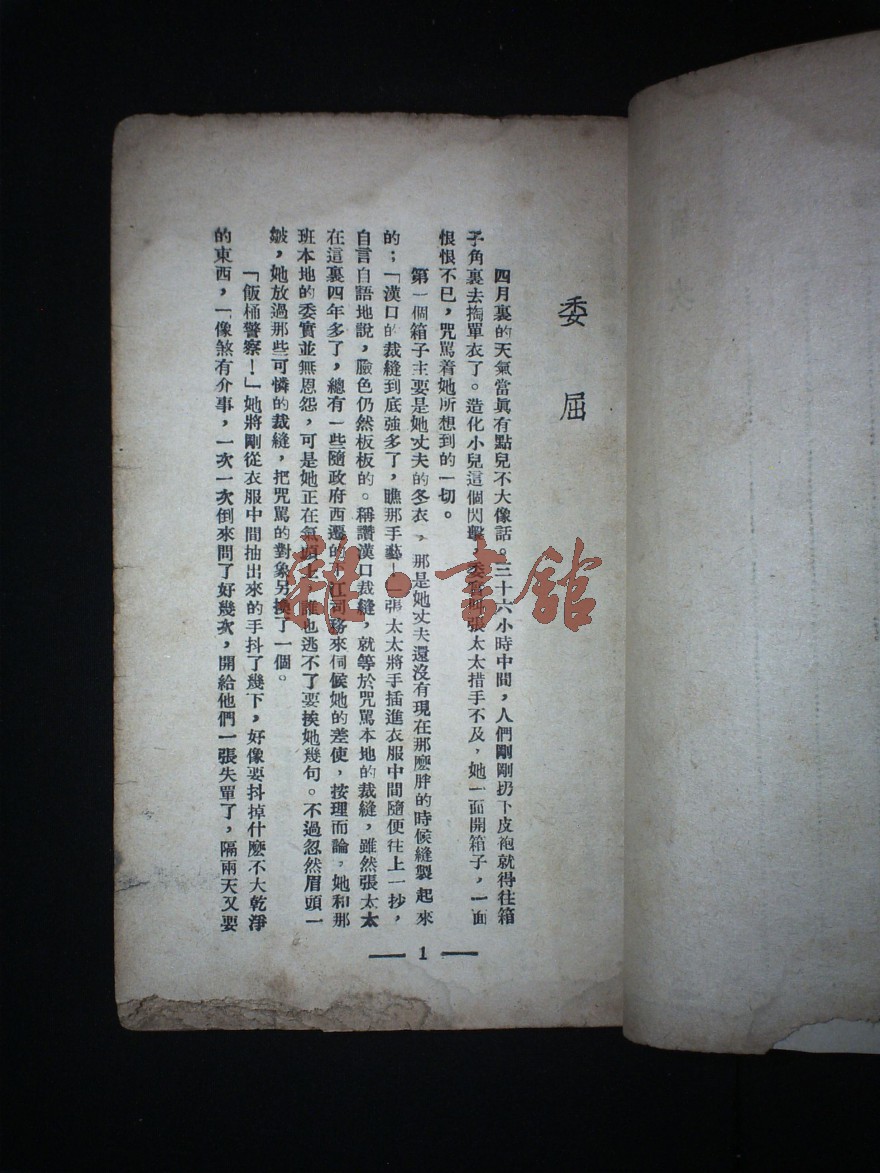 委屈
四月裏的天氣當眞有點兒不大像話。三十六小時中間，人們剛剛扔下皮袍就得往箱
子角裏去掏單衣了。造化小兒這個閃擊，委實叫張太太措手不及，她一面開箱子，一面
恨恨不已，咒罵着她所想到的一切。
第一個箱子主要是她丈夫的冬衣，那是她丈夫還沒有現在那麼胖的時候縫製起來
的；「漢口的裁縫到底強多了，瞧那手藝！」張太太將手插進衣服中間隨便往上一抄，
自言自語地說，臉色仍然板板的。稱讚漢口裁縫，就等於咒罵本地的裁縫，雖然張太太
在這裏四年多了，總有一些隨政府西遷的下江同務來伺候她的差使，按理而論，她和那
班本地的委實並無恩怨，可是她正在氣頭上，誰也逃不了要挨她幾句。不過忽然眉頭一
皺，她放過那些可憐的裁縫，把咒罵的對象另換了一個。
「飯桶警察！」她將剛從衣服中間抽出來的手抖了幾下，好像要抖掉什麼不大乾淨
的東西，「像煞有介事，一次一次倒來問了好幾次，開給他們一張失單了，隔兩天又要
— 1 —
雜·書館